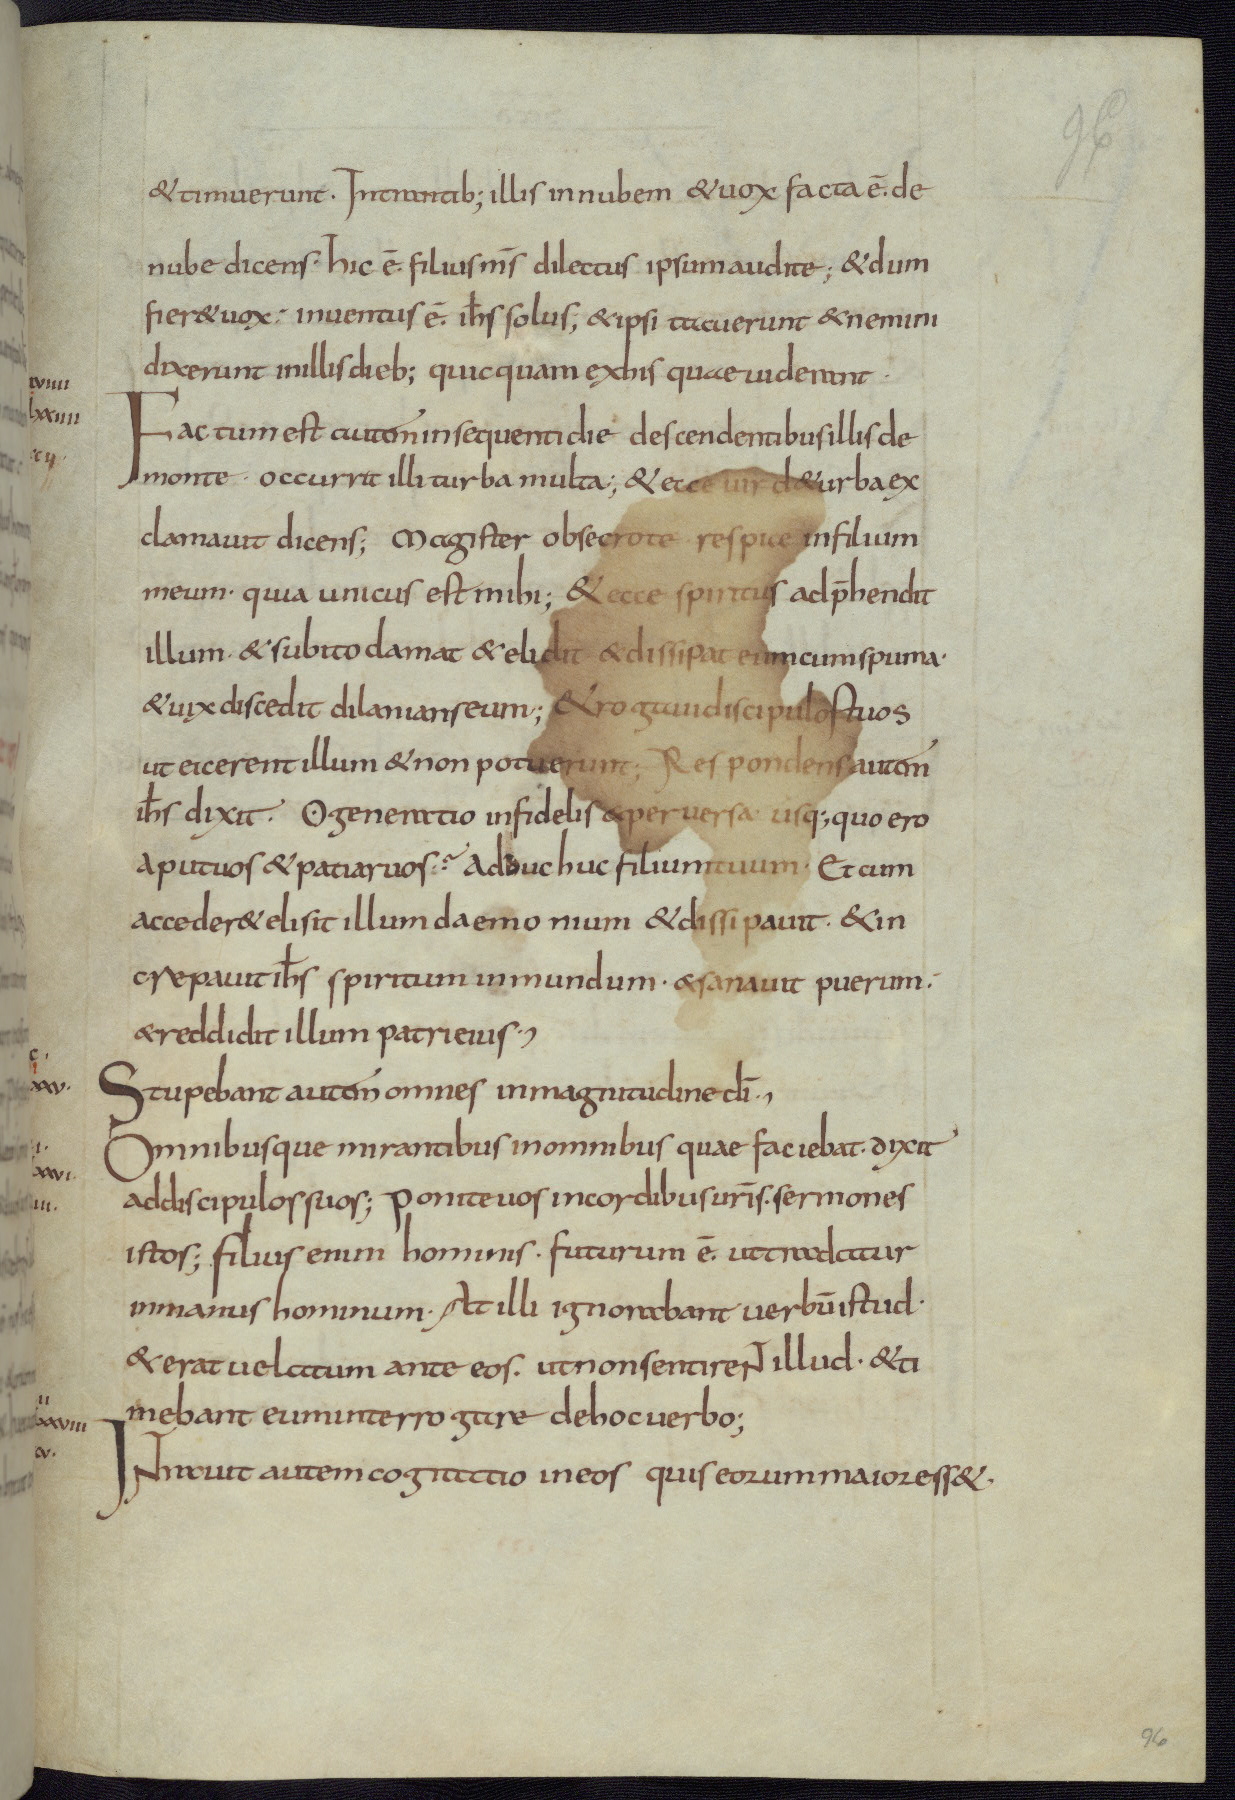 96
&timuerunt. Intrantib; illis innubem &uox facta ē. de
nube dicens. hic ē. filius m̄s dilectus ipsumaudite; &dum
fier&uox. inuentus ē. ih̄s solus; &ipsi tacuerunt &nemini
dixerunt inillisdieb; quicquam exhis quae uiderant.
Factum est autem insequenti die descendentibus illis de
monte. occurrit illi turba multa; &ecce uir d&urba ex
clamauit dicens; Magister obsecrote respice infilium
meum. quia unicus est mihi; &ecce spiritus adp̄hendit
illum. &subito clamat &elidit &dissipat eum cumspuma.
&uix discedit dilanianseum; &rogaui discipulostuos
ut eicerent illum &non potuerunt; Respondens autem
ih̄s dixit. O generatio infidelis &peruersa usq; quo ero
aput uos &patiaruos. Adduc huc filiumtuum. Et cum
acceder& elisit illum daemonium &dissipauit. &in
crepauit ih̄s spiritum inmundum. &sanauit puerum.
&reddidit illum patrieius.
Stupebant autem omnes inmagnitudine dī.
Omnibusque mirantibus inomnibus quae faciebat. dixit
addiscipulos suos; Ponite uos incordibus ur̄is. sermones
istos; filius enim hominis. futurum ē. uttradatur
inmanus hominum. At illi ignorabant uerbū istud.
&erat uelatum ante eos. utnonsentirent illud. &ti
mebant euminterrogare dehocuerbo;
Intrauit autem cogitatio ineos quis eorum maior ess&.
96